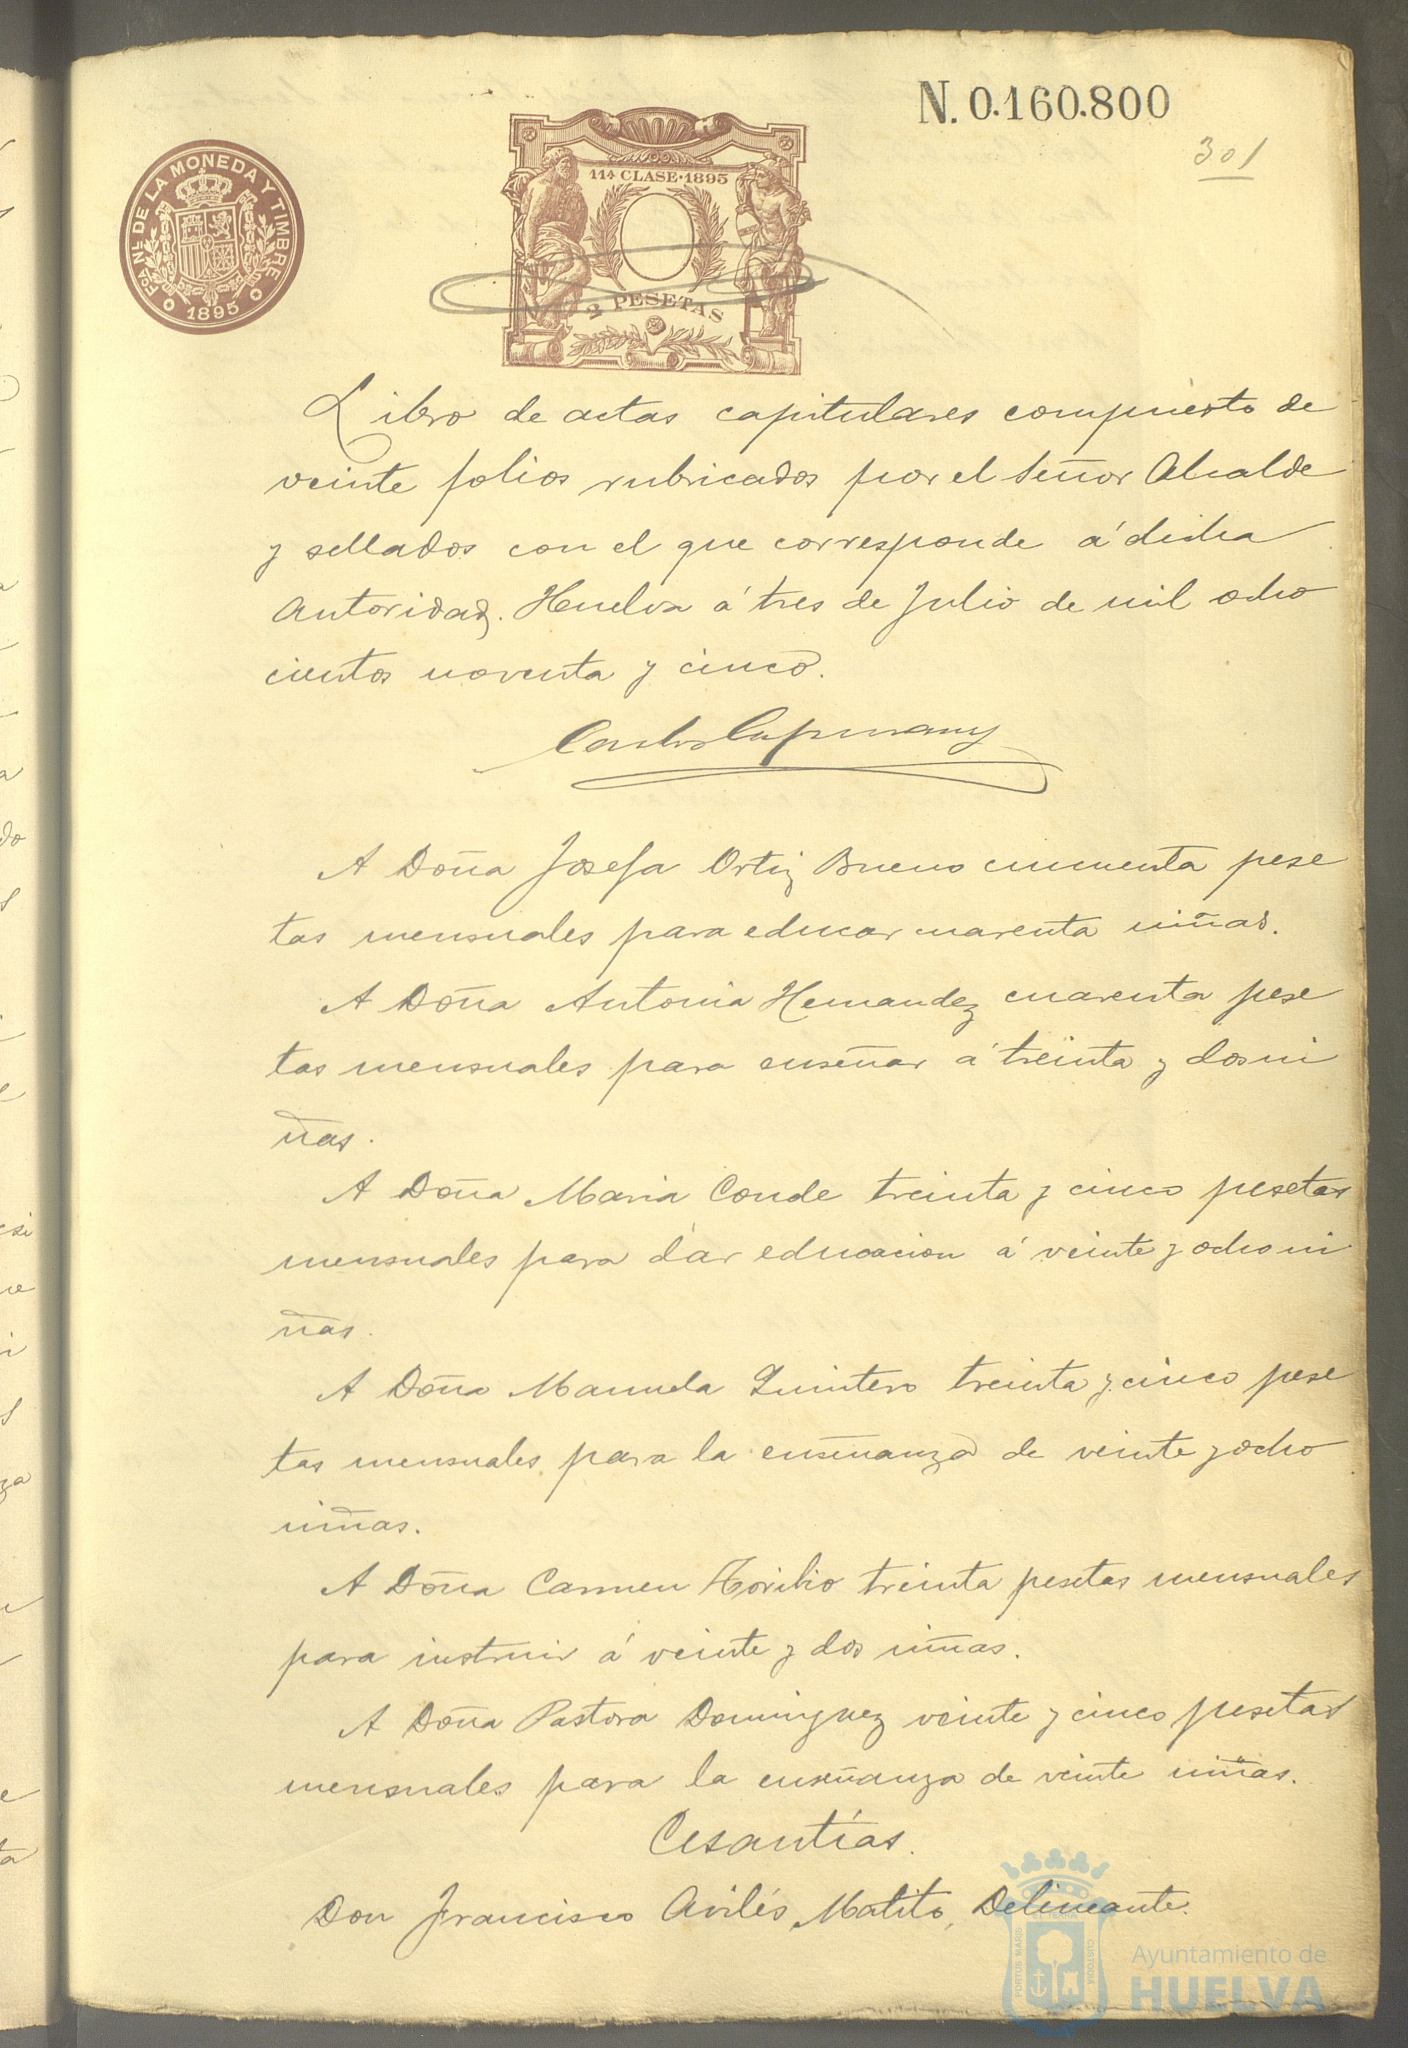 N. 0.160.800
301
Fca. Nl. DE LA MONEDA Y TIMBRE
1895
11ª CLASE·1895
2 PESETAS
Libro de actas capitulares compuesto de
veinte folios rubricados por el Señor Alcalde
y sellados con el que corresponde á dicha
Autoridad. Huelva á tres de Julio de mil ocho
cientos noventa y cinco.
A Doña Josefa Ortiz Bueno cincuenta pese
tas mensuales para educar cuarenta niñas.
A Doña Antonia Hernandez cuarenta pese
tas mensuales para enseñar á treinta y dos ni
ñas.
A Doña Maria Conde treinta y cinco pesetas
mensuales para dar educacion á veinte y ocho ni
ñas.
A Doña Manuela Quintero treinta y cinco pese
tas mensuales para la enseñanza de veinte y ocho
niñas.
A Doña Carmen Toribio treinta pesetas mensuales
para instruir á veinte y dos niñas.
A Doña Pastora Dominguez veinte y cinco pesetas
mensuales para la enseñanza de veinte niñas.
Cesantías.
Don Francisco Avilés Matito, Delineante.
PORTUS MARIS
CUSTODIA
Ayuntamiento de
HUELVA